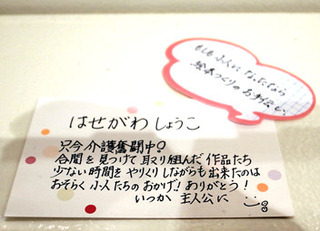 もしも小人になったなら
絵本づくりのお手伝い。
はせがわ しょうこ
只今 介護奮闘中!
合間を見つけて取り組んだ作品たち
少ない時間をやりくりしながらも出来たのは
おそらく小人たちのおかげ!ありがとう!
いつか 主人公に